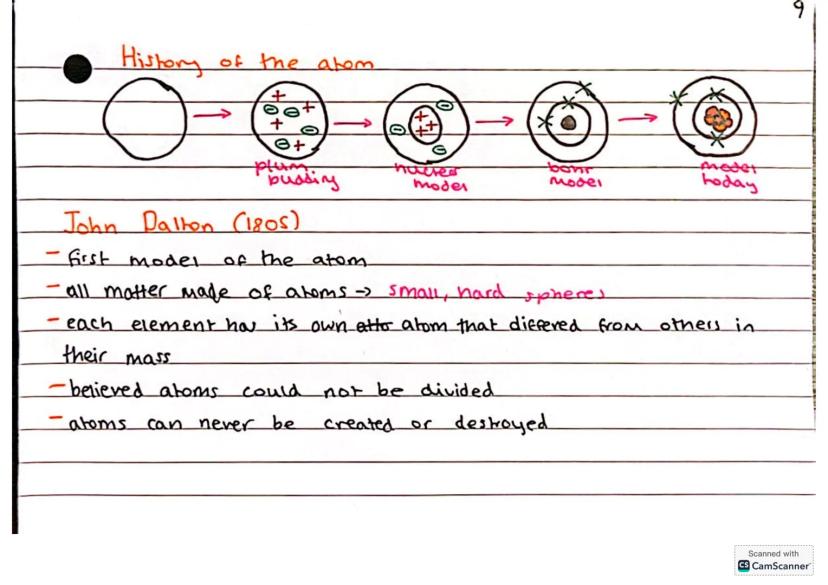 9
History of the atom
plum pudding
nuclear model
bohr model
model today
John Dalton (1805)
- first model of the atom
- all matter made of atoms → small, hard spheres
- each element has its own atto atom that differed from others in
their mass
- believed atoms could not be divided
- atoms can never be created or destroyed
Scanned with
CS CamScanner